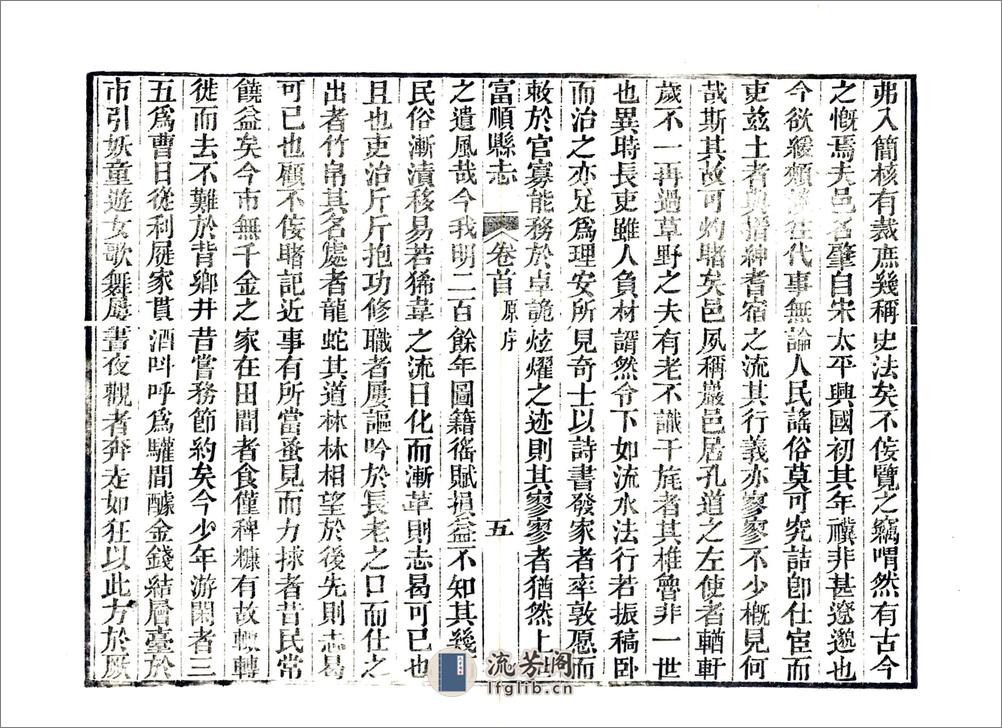 弗入簡核有裁庶幾稱史法矣不佞覽之竊喟然有古今
之慨焉夫邑名肇自宋太平興國初其年禩非甚遼邈也
今欲綴類往代事無論人民謠俗莫可究詰卽仕宦而
吏茲土者與搢紳耆宿之流其行義亦寥寥不少槪見何
哉斯其故可灼睹矣邑夙稱巖邑居孔道之左使者輶軒
歲不一再過草野之夫有老不識干旄者其椎魯非一世
也異時長吏雖人負材諝然令下如流水法行若振槁卧
而治之亦足爲理安所見奇士以詩書發家者率敦愿而
敕於官寡能務於卓詭炫燿之迹則其寥寥者猶然上
富順縣志 卷首 原序 五
之遺風哉今我明二百餘年圖籍徭賦損益不知其幾
民俗漸漬核易若狶韋之流日化而漸革則志曷可已也
且也吏治斤斤抱功修職者屢謳吟於長老之口而仕之
出者竹帛其名處者龍蛇其道林林相望於後先則志曷
可已也顧不佞睹記近事有所當蚤見而力捄者昔民常
饒益矣今市無千金之家在田間者食僅稗糠有故輒轉
徙而去不難於背鄉井昔嘗務節約矣今少年游閑者三
五爲曹日從利屣家貰酒呌呼爲驩間醵金錢結層臺於
市引妖童遊女歌舞屢晝夜觀者奔走如狂以此方於厥
流芳閣
lfglib.cn